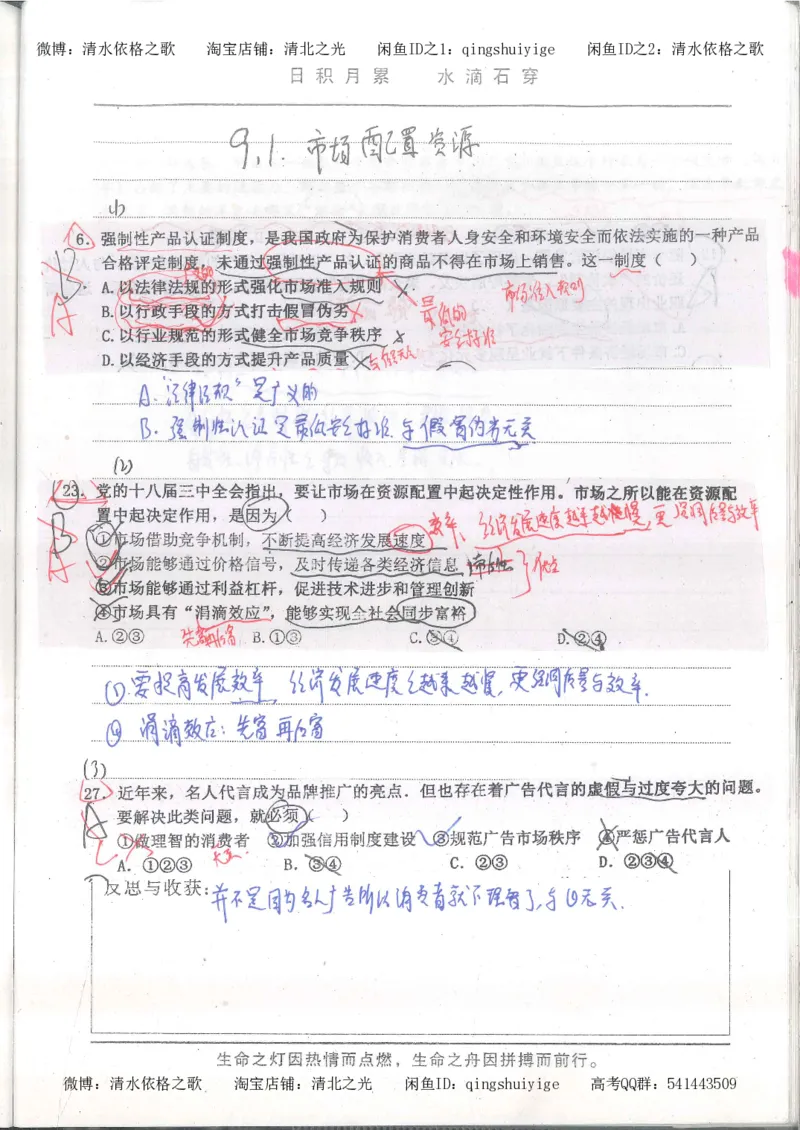 微博：清水依格之歌 淘宝店铺：清北之光 闲鱼ID之1：qingshuiyige 闲鱼ID之2：清水依格之歌
日积月累 水滴石穿
9.1. 市场配置资源
(1)
6. 强制性产品认证制度，是我国政府为保护消费者人身安全和环境安全而依法实施的一种产品
合格评定制度。未通过强制性产品认证的商品不得在市场上销售。这一制度（ ）
A.以法律法规的形式强化市场准入规则
市场准入规则
B.以行政手段的方式打击假冒伪劣
最低的
安全标准
C.以行业规范的形式健全市场竞争秩序
D.以经济手段的方式提升产品质量
A. "法律法规"是广义的
B. 强制性认证是最低安全标准，与假冒伪劣无关
(2)
23. 党的十八届三中全会指出，要让市场在资源配置中起决定性作用。市场之所以能在资源配
置中起决定作用，是因为（ ）
效率、经济发展速度越来越慢，更强调质量与效率
①市场借助竞争机制，不断提高经济发展速度
②市场能够通过价格信号，及时传递各类经济信息
③市场能够通过利益杠杆，促进技术进步和管理创新
④市场具有“涓滴效应”，能够实现全社会同步富裕
A.②③ 先富后富 B.①③ C.③④ D.②④
①.要提高发展效率，经济发展速度会越来越慢，更强调质量与效率.
④ 涓滴效应：先富再后富
(3)
27. 近年来，名人代言成为品牌推广的亮点．但也存在着广告代言的虚假与过度夸大的问题。
要解决此类问题，就必须（ ）
①做理智的消费者 ②加强信用制度建设 ③规范广告市场秩序 ④严惩广告代言人
A. ①②③ 无关 B. ③④ C. ②③ D. ②③④
反思与收获：并不是因为名人广告所以消费者就不理智了，与①无关.
生命之灯因热情而点燃，生命之舟因拼搏而前行。
微博：清水依格之歌 淘宝店铺：清北之光 闲鱼ID：qingshuiyige 高考QQ群：541443509